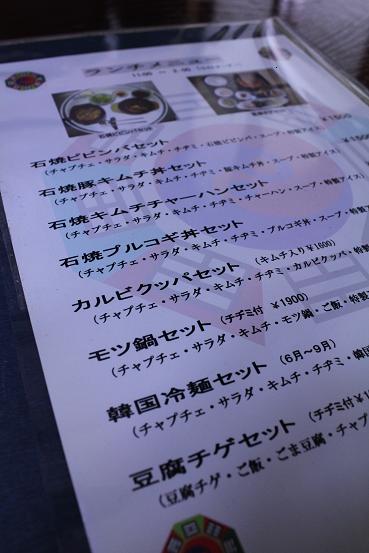 ランチメニュー
石焼ビビンバセット ¥1500
(チャプチェ・サラダ・キムチ・チヂミ・石焼ビビンバ・スープ・特製アイス)
石焼豚キムチ丼セット
(チャプチェ・サラダ・キムチ・チヂミ・豚キムチ丼・スープ・特製アイス)
石焼キムチチャーハンセット
(チャプチェ・サラダ・キムチ・チヂミ・チャーハン・スープ・特製アイス)
石焼プルコギ丼セット
(チャプチェ・サラダ・キムチ・チヂミ・プルコギ丼・スープ・特製
カルビクッパセット (キムチ入り¥1600)
(チャプチェ・サラダ・キムチ・チヂミ・カルビクッパ・特製
モツ鍋セット (チヂミ付 ¥1900)
(チャプチェ・サラダ・キムチ・モツ鍋・ご飯・特製
韓国冷麺セット (6月~9月)
(チャプチェ・サラダ・キムチ・チヂミ・韓国
豆腐チゲセット (チヂミ付¥1
(豆腐チゲ・ご飯・ごま豆腐・チャプ